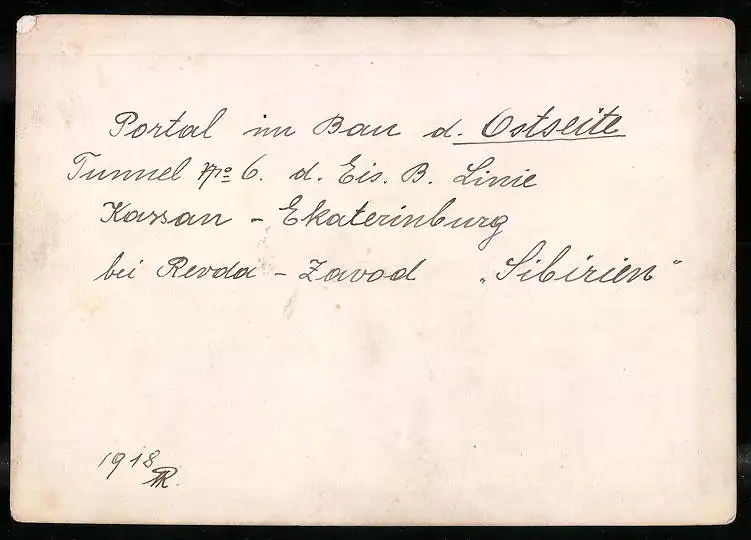 Portal im Bau d. Ostseite
Tunnel No 6. d. Eis. B. Linie
Kassan - Ekaterinburg
bei Revda - Zavod „Sibirien"
1918